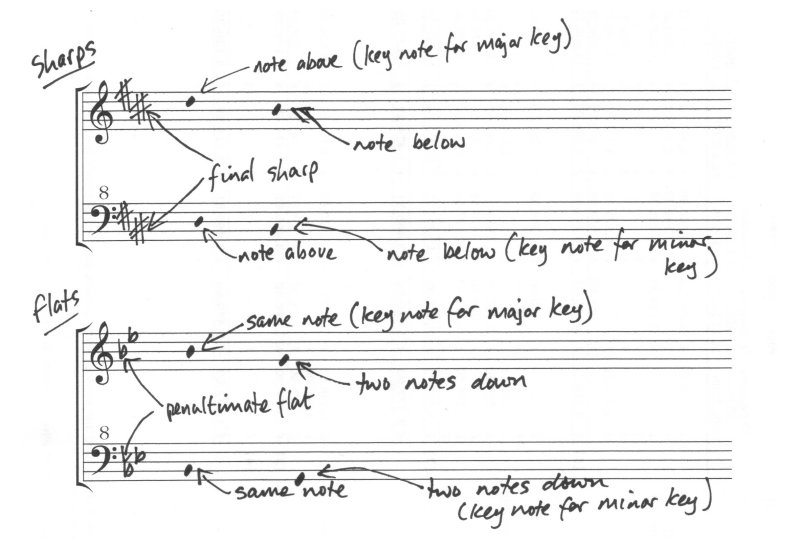 Sharps
note above (key note for major key)
note below
final sharp
8
note above
note below (key note for minor
key)
flats
same note (key note for major key)
two notes down
penaltimate flat
8
same note
two notes down
(key note for minor key)